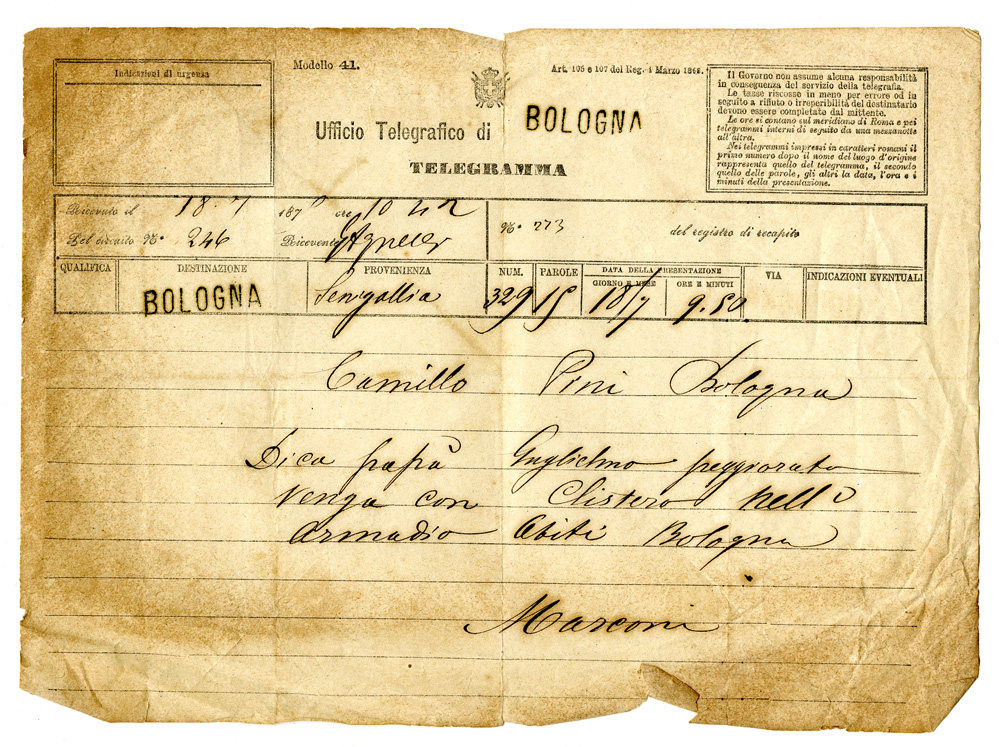 Indicazioni di urgenza
Modello 41.
Art. 105 e 107 del Reg. 1 Marzo 186
Il Governo non assume alcuna responsabilità
in conseguenza del servizio della telegrafia.
Le tasse riscosse in meno per errore od in
seguito a rifiuto o irreperibilità del destinatario
devono essere completate dal mittente.
Le ore si contano sul meridiano di Roma e pei
telegrammi interni di seguito da una mezzanotte
all'altra.
Nei telegrammi impressi in caratteri romani il
primo numero dopo il nome del luogo d'origine
rappresenta quello del telegramma, il secondo
quello delle parole, gli altri la data, l'ora e i
minuti della presentazione.
Ufficio Telegrafico di BOLOGNA
TELEGRAMMA
Ricevuto il 18.7 187 ore 10 42
Pel circuito N.° 246 Ricevente
N.° 273 del registro di recapito
QUALIFICA DESTINAZIONE PROVENIENZA NUM. PAROLE DATA DELLA PRESENTAZIONE VIA INDICAZIONI EVENTUALI
GIORNO E MESE ORE E MINUTI
BOLOGNA Senigallia 329 15 18/7 9.50
Camillo Pini Bologna
Dica papà Guglielmo peggiorato
venga con Clistero nell'
armadio abiti Bologna
Marconi